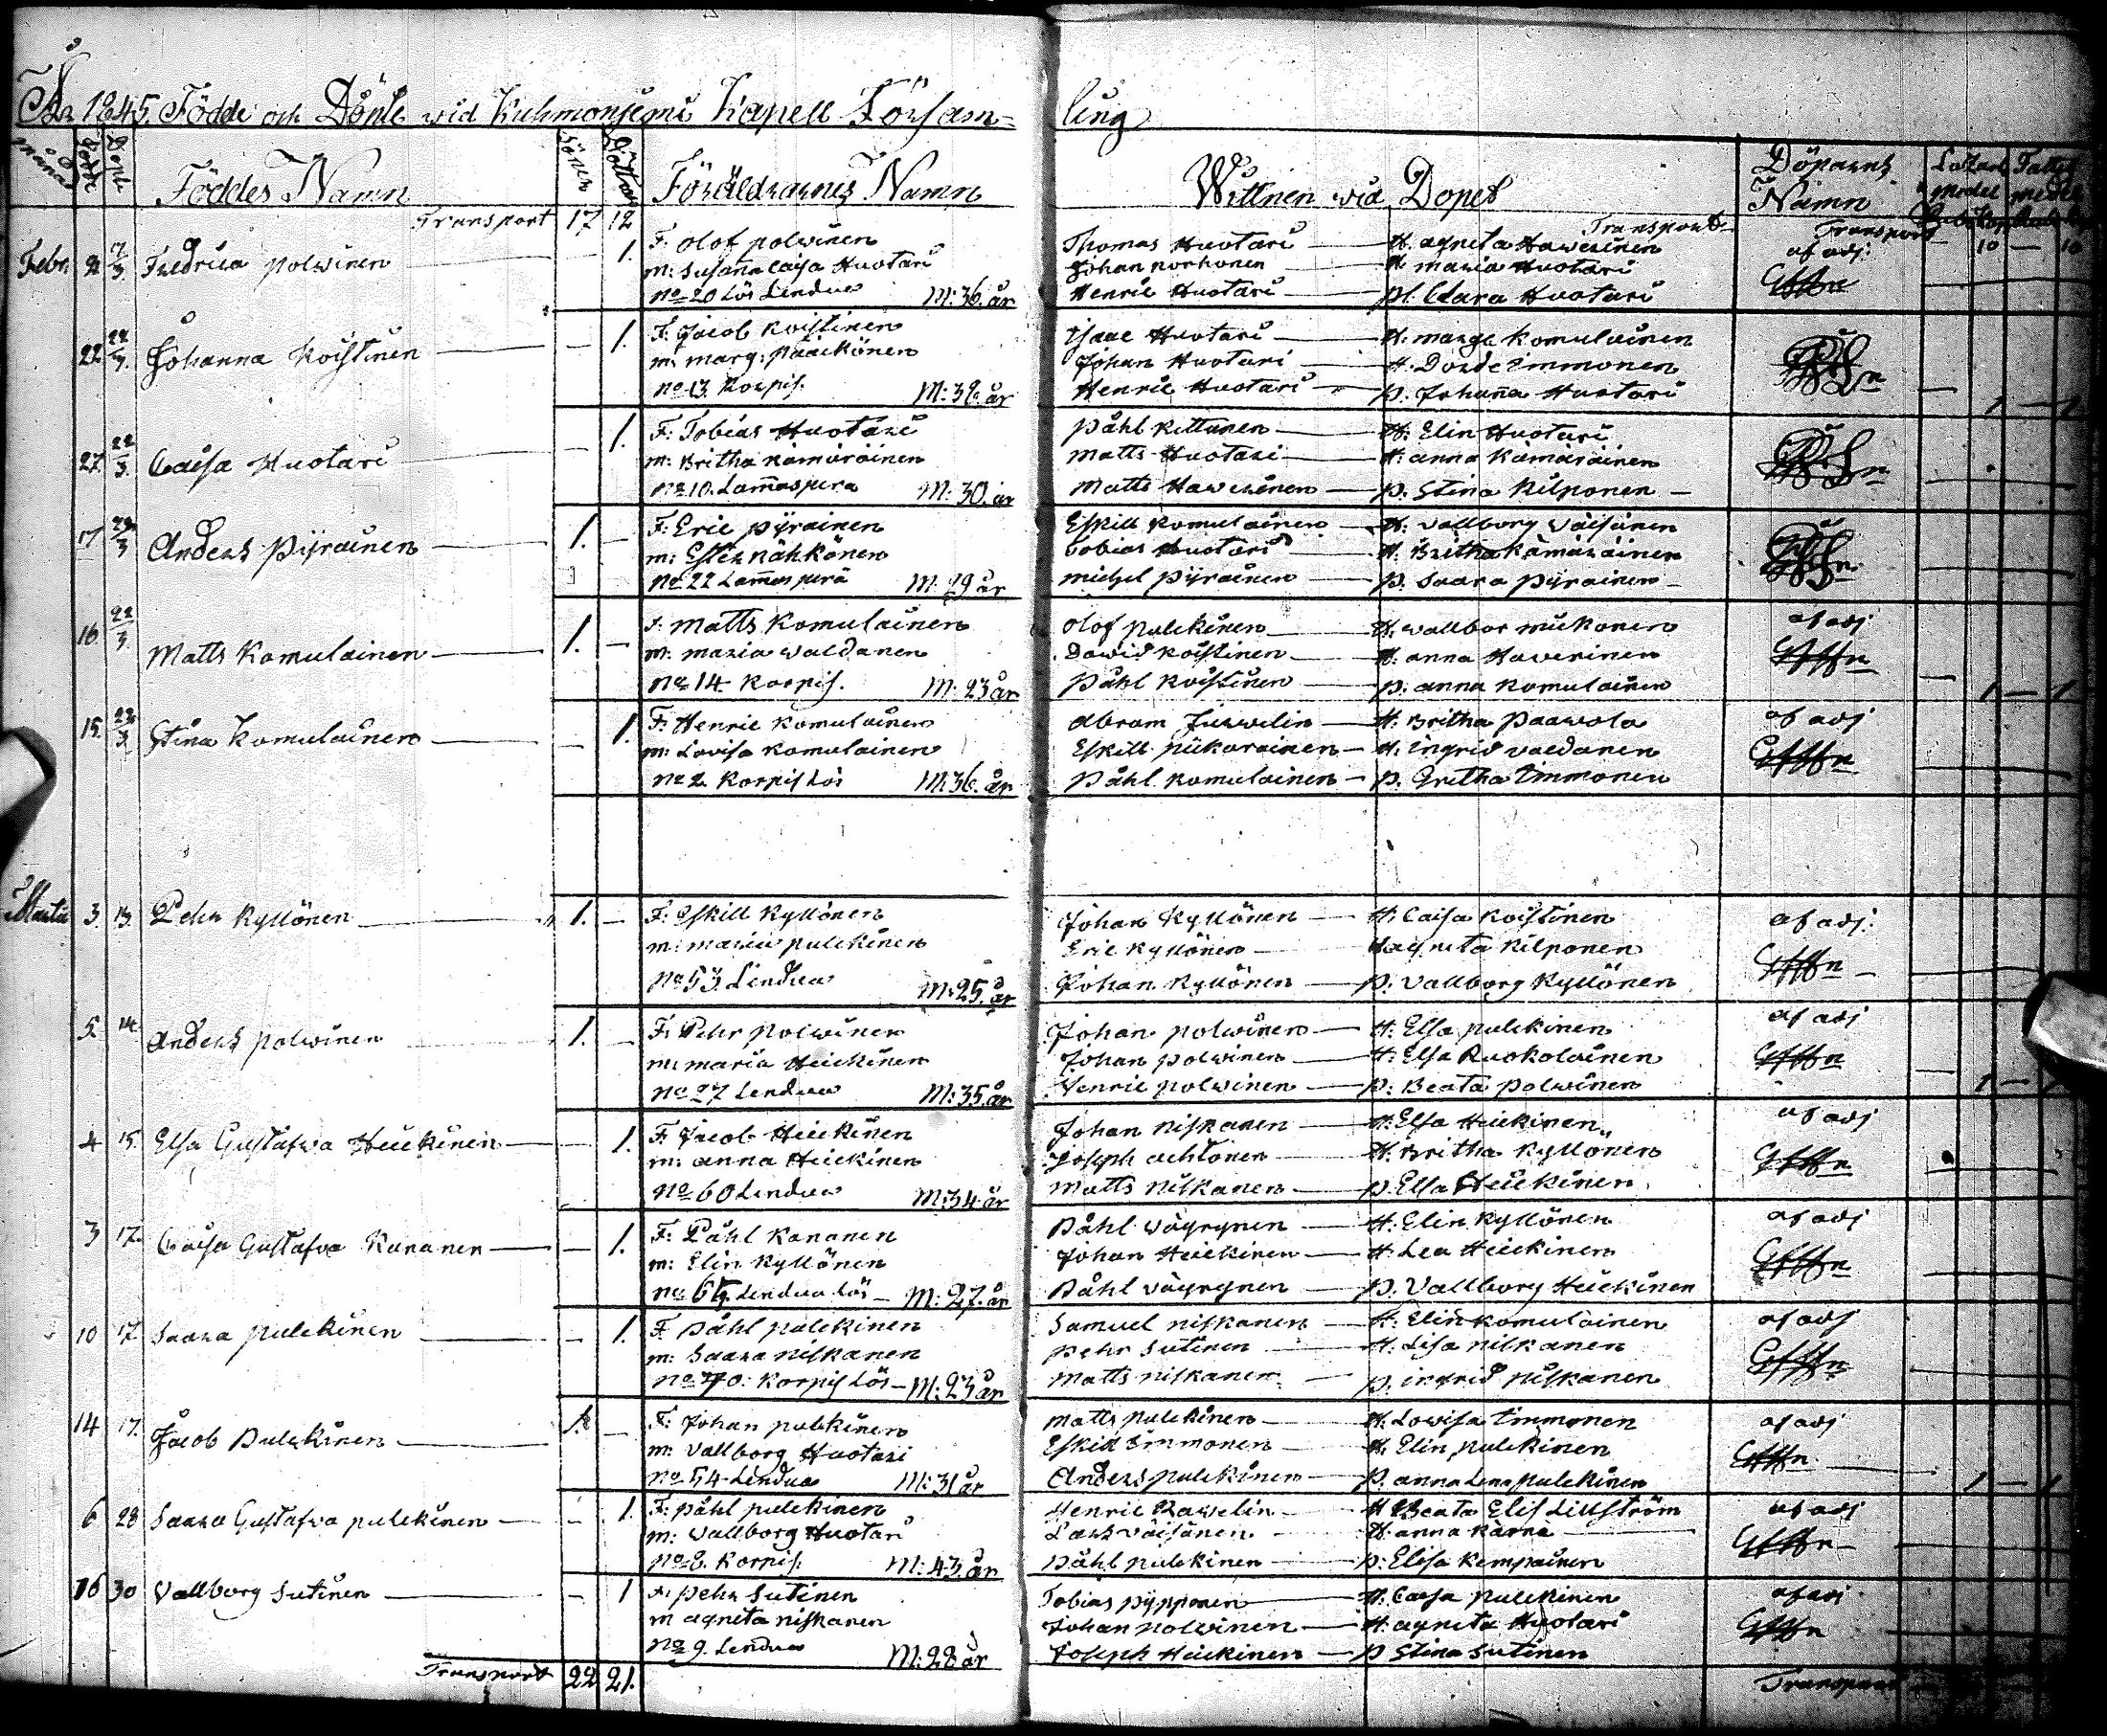 År 1845. Födde och Döpte wid Kuhmoniemi Kapell Församling
månad Födde Döpte Föddes Namn Söner Döttrar Föräldrarnes Namn Wittnen wid Dopet Döparens Namn
Transport 17 12 Transport Transport 10 — 10
Febr. 2 7/3 Fredrica Polwinen — 1. F: Olof Polwinen Thomas Huotari — H. Agneta Hawerinen af adj:
m: Susanna Caisa Huotari Johan Korhonen — H. Maria Huotari
No 20 Lös Lendua M: 36. år Henric Huotari — pl. Clara Huotari
22 22/3. Johanna Koistinen — 1. F. Jacob Koistinen Isaac Huotari — H. Marge Komulainen
m: Marg: Pääikönen Johan Huotari — H. Dorde Immonen
No 13 Korpis. M: 38. år Henric Huotari — p. Johanna Huotari 1 — 1
27 22/3. Caisa Huotari — 1. F: Tobias Huotari Påhl Kettunen — H. Elin Huotari
m: Britha Kämäräinen Matts Huotari — H. Anna Kämäräinen
No 10. Lam̄aspera M: 30. år Matts Hawerinen — p. Stina Kilponen —
17 22/3 Anders Pyrainen 1. — F: Eric Pyrainen Eskill Komulainen — H. Vallborg Väisänen
m: Ester Nähkönen Tobias Huotari — H. Britha Kämäräinen
No 22 Lam̄asperä M: 29 år Michel Pyrainen — p. Saara Pyrainen —
16 22/3. Matts Komulainen 1. — F. Matts Komulainen Olof Pulckinen — H. Wallbor Mickonen af adj
m: Maria Waldanen Dawid Koistinen — H. Anna Haverinen
No 14 Korpis. M: 23 år Påhl Koistinen — p. Anna Komulainen 1 — 1
15. 22/3. Stina Komulainen — 1. F: Henric Komulainen Abram Juewelin — H. Britha Paawola af adj
m: Lovisa Komulainen Eskill Pickarainen — H. Ingrid Valdanen
No 2 Korpis Lös M: 36. år Påhl Komulainen — p. Gretha Immonen
Martii 3 13. Pehr Kyllönen 1. — F: Eskill Kyllönen Johan Kyllönen — H. Caisa Koistinen af adj:
m: Maria Pulckinen Eric Kyllönen — H Agneta Kilponen
No 53. Lendua M: 25. år Johan Kyllönen — p. Vallborg Kyllönen
5. 14. Anders Polwinen 1. — F. Pehr Polwinen Johan Polwinen — H. Elsa Pulckinen af adj
m: Maria Heickinen Johan Polwinen — H. Elsa Ruokolainen
No 27 Lendua M: 35. år Henric Polwinen — p. Beata Polwinen 1 — 1
4 15. Elsa Gustafwa Heickinen — 1. F. Jacob Heickinen Johan Niskanen — H. Elsa Heickinen af adj
m: Anna Heickinen Joseph Achtonen — H. Britha Kyllönen
No 60 Lendua M: 34 år Matts Niskanen — p. Elsa Heickinen
3 17. Caisa Gustafva Kananen — 1. F: Påhl Kananen Påhl Väyrynen — H. Elin Kyllönen af adj
m: Elin Kyllönen Johan Heickinen — H. Lea Heickinen
Lendua Lös — M: 27. år Påhl Väyrynen — p. Vallborg Heickinen
10 17. Saara Pulckinen — 1. F. Påhl Pulckinen Samuel Niskanen — H. Elin Komulainen af adj
m: Saara Niskanen Pehr Sutinen H. Lisa Niskanen
Korpis Lös — M: 23 år Matts Niskanen — p. Ingrid Niskanen
14 17. Jacob Pulckinen 1. — F: Johan Pulckinen Matts Pulckinen — H. Lowisa Immonen af adj
m: Vallborg Huotari Eskill Immonen — H. Elin Pulckinen
No 54 Lendua M: 31 år Anders Pulckinen — p. Anna Lena Pulckinen 1 — 1
6 28 Saara Gustafva Pulckinen — 1. F: Påhl Pulckinen Henric Rawelin — H Beata Elis Lillström af adj
m: Vallborg Huotari Lars Väisänen — H. Anna Kärnä
No 8. Korpis. M: 43. år Påhl Pulckinen — p. Elisa Kempainen
16 30 Vallborg Sutinen — 1 F: Pehr Sutinen Tobias Pypponen — H. Caisa Pulckinen af adj
m Agneta Niskanen Johan Polwinen — H. Agneta Huotari
No 9. Lendua M: 28 år Joseph Heickinen — p Stina Sutinen
Transport 22 21. Transport